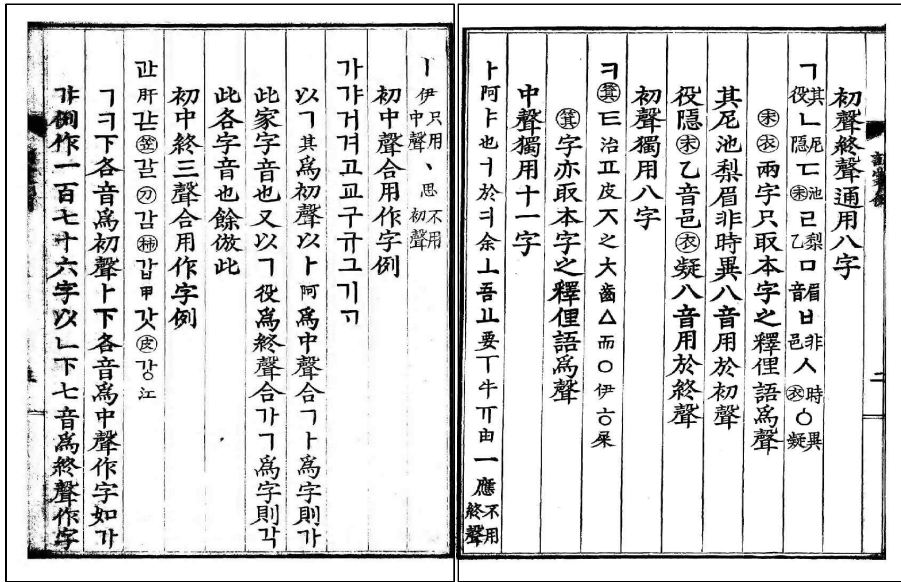 初聲終聲通用八字
ㄱ其役ㄴ尼隱ㄷ池末ㄹ梨乙ㅁ眉音ㅂ非邑ㅅ時衣ㆁ異凝
末衣兩字只取本字之釋俚語爲聲
其尼池梨眉非時異八音用於初聲
役隱末乙音邑衣凝八音用於終聲
初聲獨用八字
ㅋ箕ㅌ治ㅍ皮ㅈ之ㅊ齒ㅿ而ㅇ伊ㅎ屎
箕字亦取本字之釋俚語爲聲
中聲獨用十一字
ㅏ阿ㅑ也ㅓ於ㅕ余ㅗ吾ㅛ要ㅜ牛ㅠ由ㅡ應不用終聲
ㅣ伊只用中聲ㆍ思不用初聲
初中聲合用作字例
가갸거겨고교구규그기ᄀᆞ
以ㄱ其爲初聲以ㅏ阿爲中聲合ㄱㅏ爲字則가
此家字音也又以ㄱ役爲終聲合가ㄱ爲字則각
此各字音也餘倣此
初中終三聲合用作字例
간肝갇笠갈刀감柿갑甲갓皮강江
ㄱㅋ下各音爲初聲ㅏ下各音爲中聲作字如가
갸例作一百七十六字以ㄴ下七音爲終聲作字